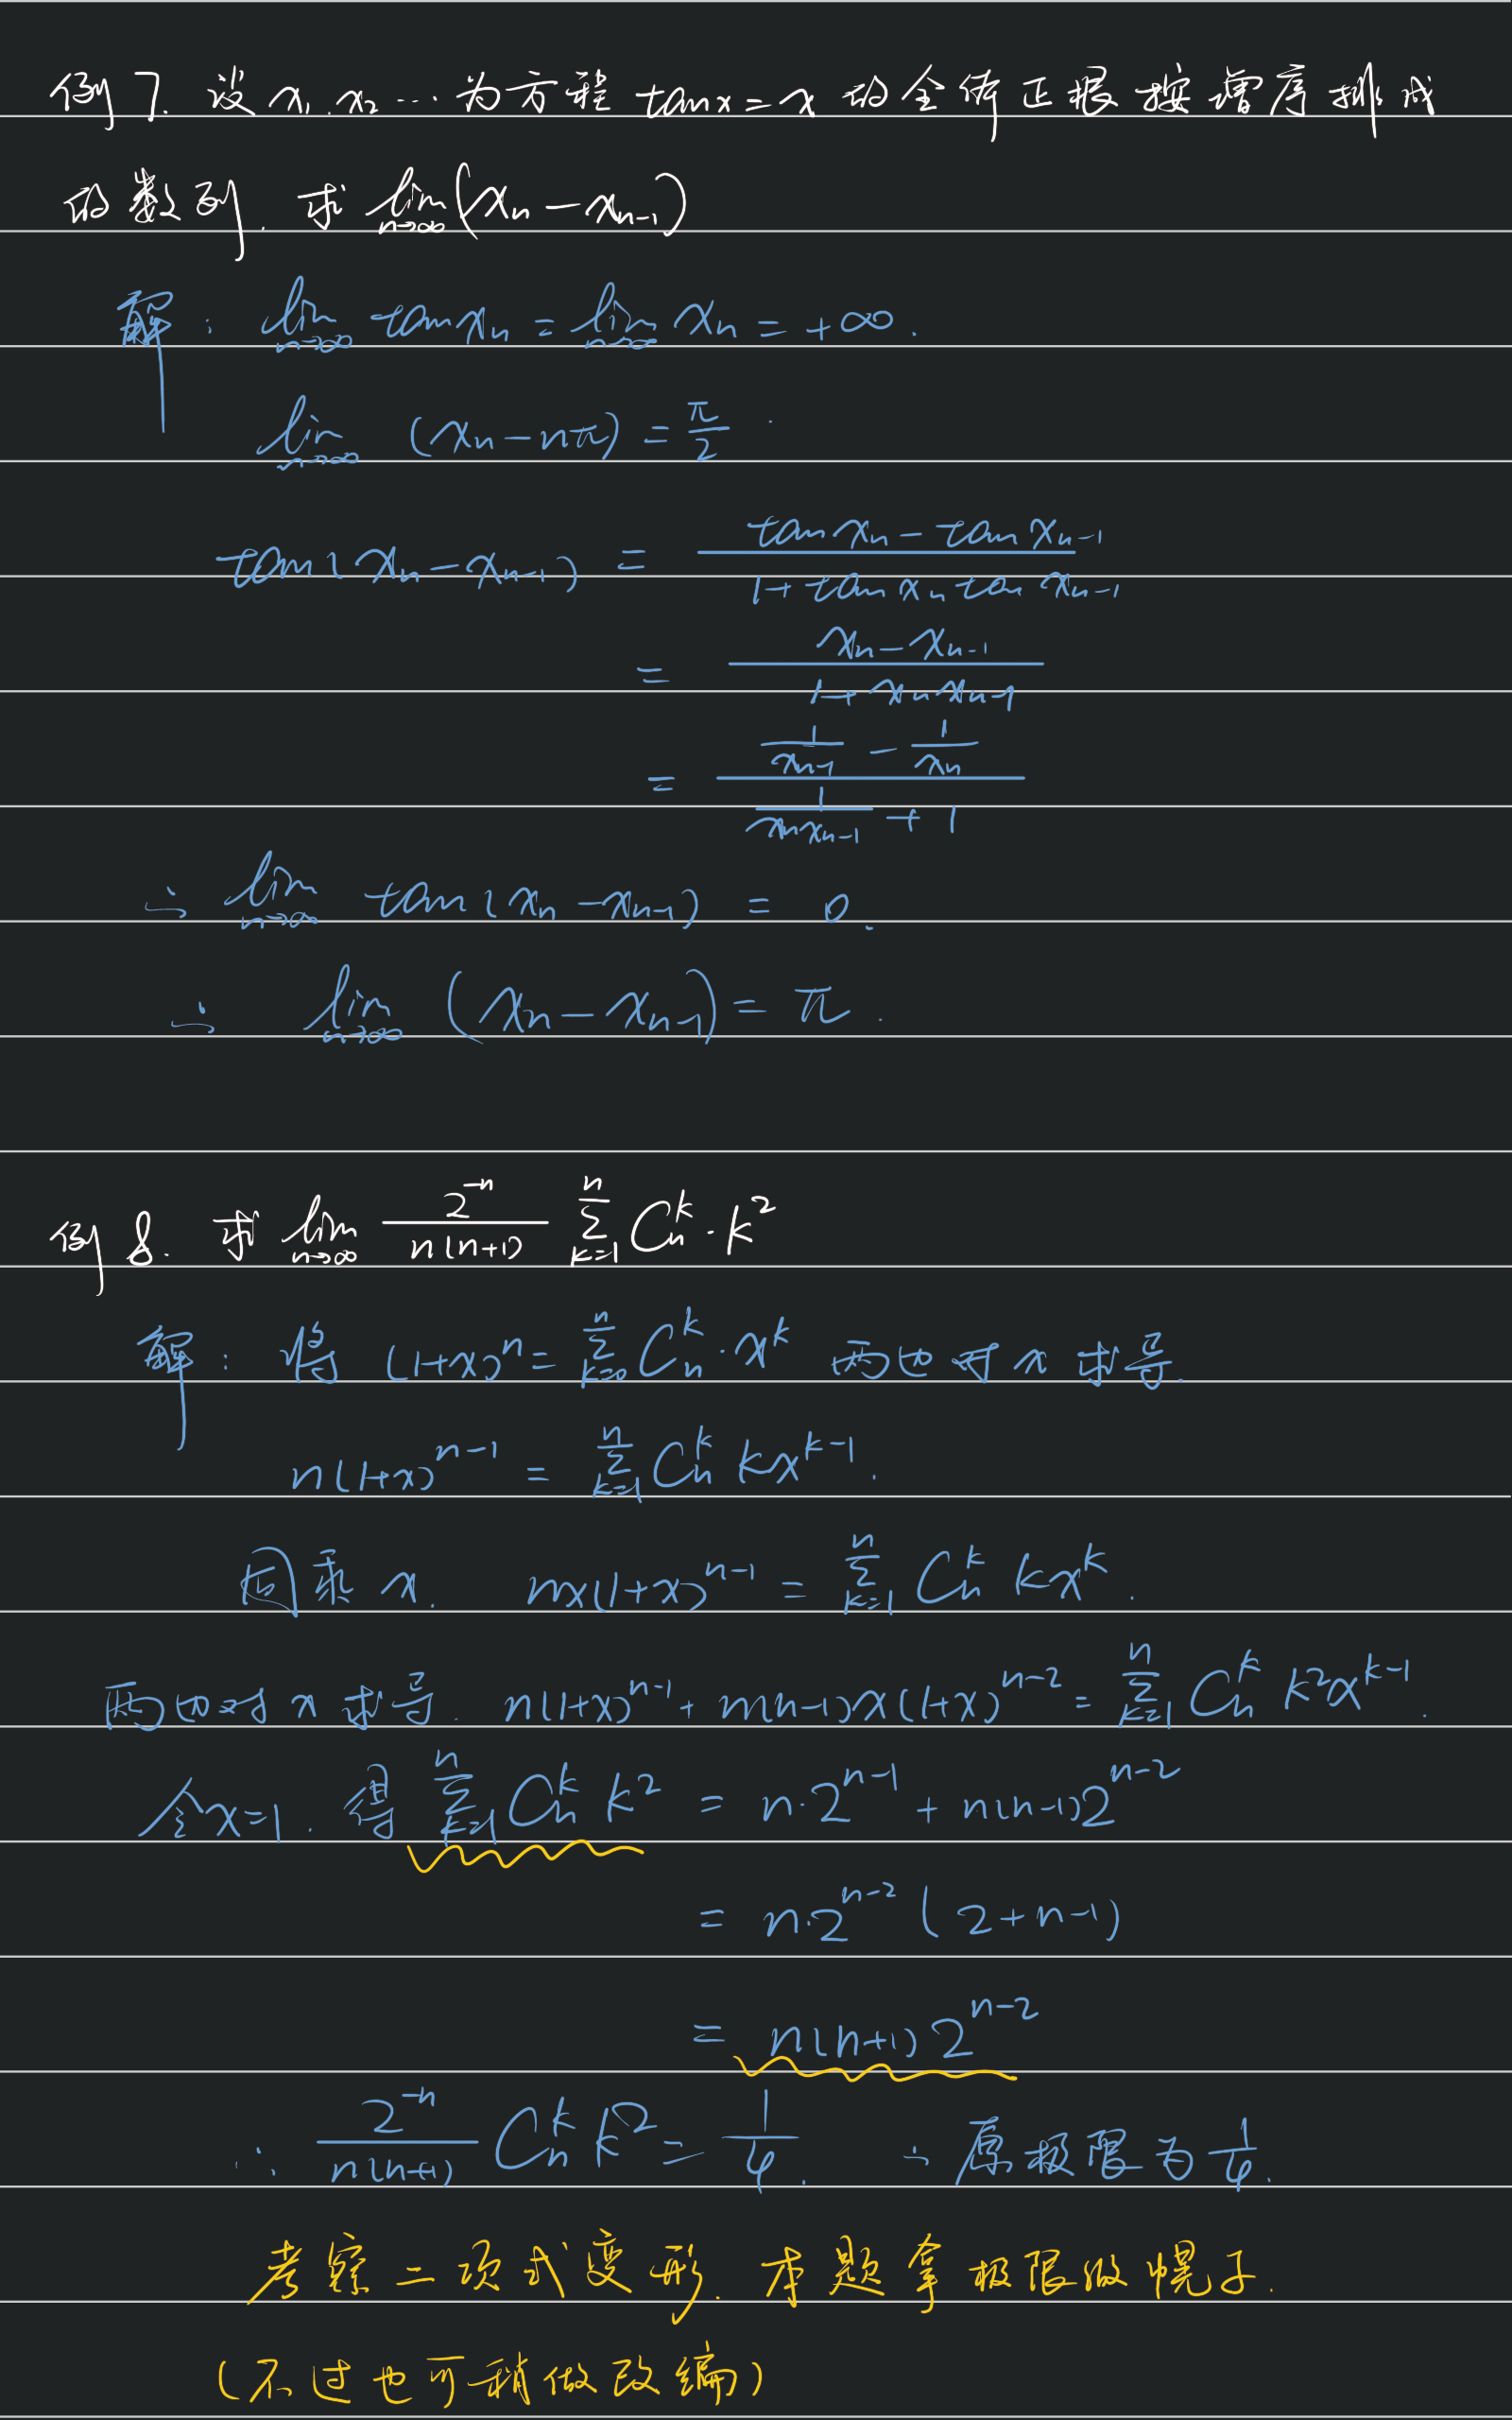 例7. 设 x₁. x₂ ⋯ 为方程 tanx = x 的全体正根按增序排成
的数列. 求 lim_{n→∞}(xₙ − xₙ₋₁)
解: lim_{n→∞} tanxₙ = lim_{n→∞} xₙ = +∞.
lim_{n→∞} (xₙ − nπ) = π/2.
tan(xₙ − xₙ₋₁) = (tanxₙ − tanxₙ₋₁)/(1 + tanxₙ tanxₙ₋₁)
= (xₙ − xₙ₋₁)/(1 + xₙxₙ₋₁)
= (1/xₙ₋₁ − 1/xₙ)/(1/(xₙxₙ₋₁) + 1)
∴ lim_{n→∞} tan(xₙ − xₙ₋₁) = 0.
∴ lim_{n→∞} (xₙ − xₙ₋₁) = π.
例8. 求 lim_{n→∞} 2^{-n}/(n(n+1)) ∑_{k=1}^{n} C_n^k · k²
解: 将 (1+x)^n = ∑_{k=0}^{n} C_n^k · x^k 两边对x求导.
n(1+x)^{n-1} = ∑_{k=1}^{n} C_n^k kx^{k-1}.
同乘x. nx(1+x)^{n-1} = ∑_{k=1}^{n} C_n^k kx^k.
两边对x求导. n(1+x)^{n-1} + n(n-1)x(1+x)^{n-2} = ∑_{k=1}^{n} C_n^k k²x^{k-1}.
令x=1. 得 ∑_{k=1}^{n} C_n^k k² = n·2^{n-1} + n(n-1)2^{n-2}
= n·2^{n-2} (2+n-1)
= n(n+1)2^{n-2}
∴ 2^{-n}/(n(n+1)) C_n^k k² = 1/4. ∴ 原极限为 1/4.
考察二项式变形. 本题拿极限做幌子.
(不过也可稍做改编)